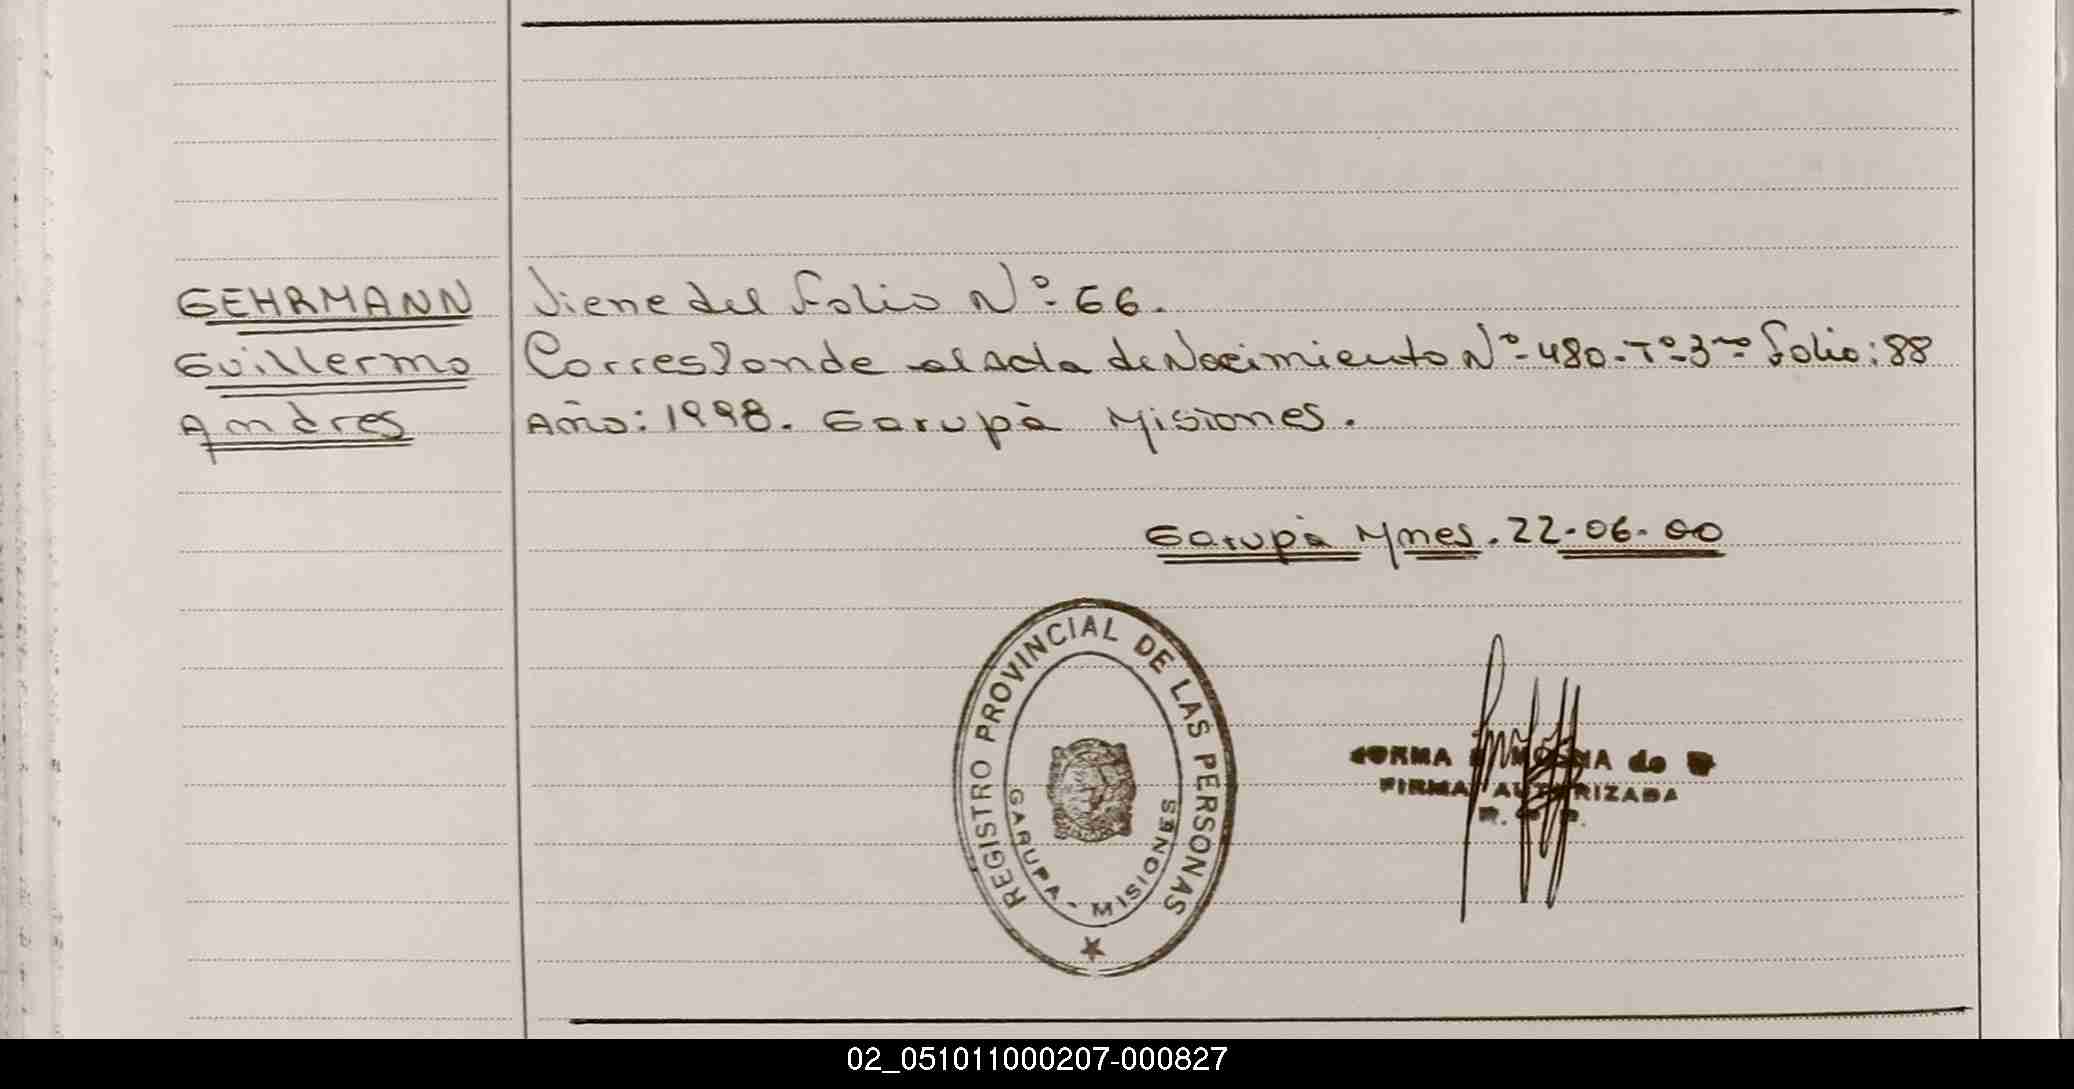 GEHRMANN Viene del Folio Nº 66.
Guillermo Corresponde al acta de Nacimiento Nº 480 - Tº 3ro Folio: 88
Andres Año: 1998. Garupà Misiones.
Garupà Mnes. 22-06-00
REGISTRO PROVINCIAL DE LAS PERSONAS
GARUPA - MISIONES
de
FIRMA AUTORIZADA
02_051011000207-000827